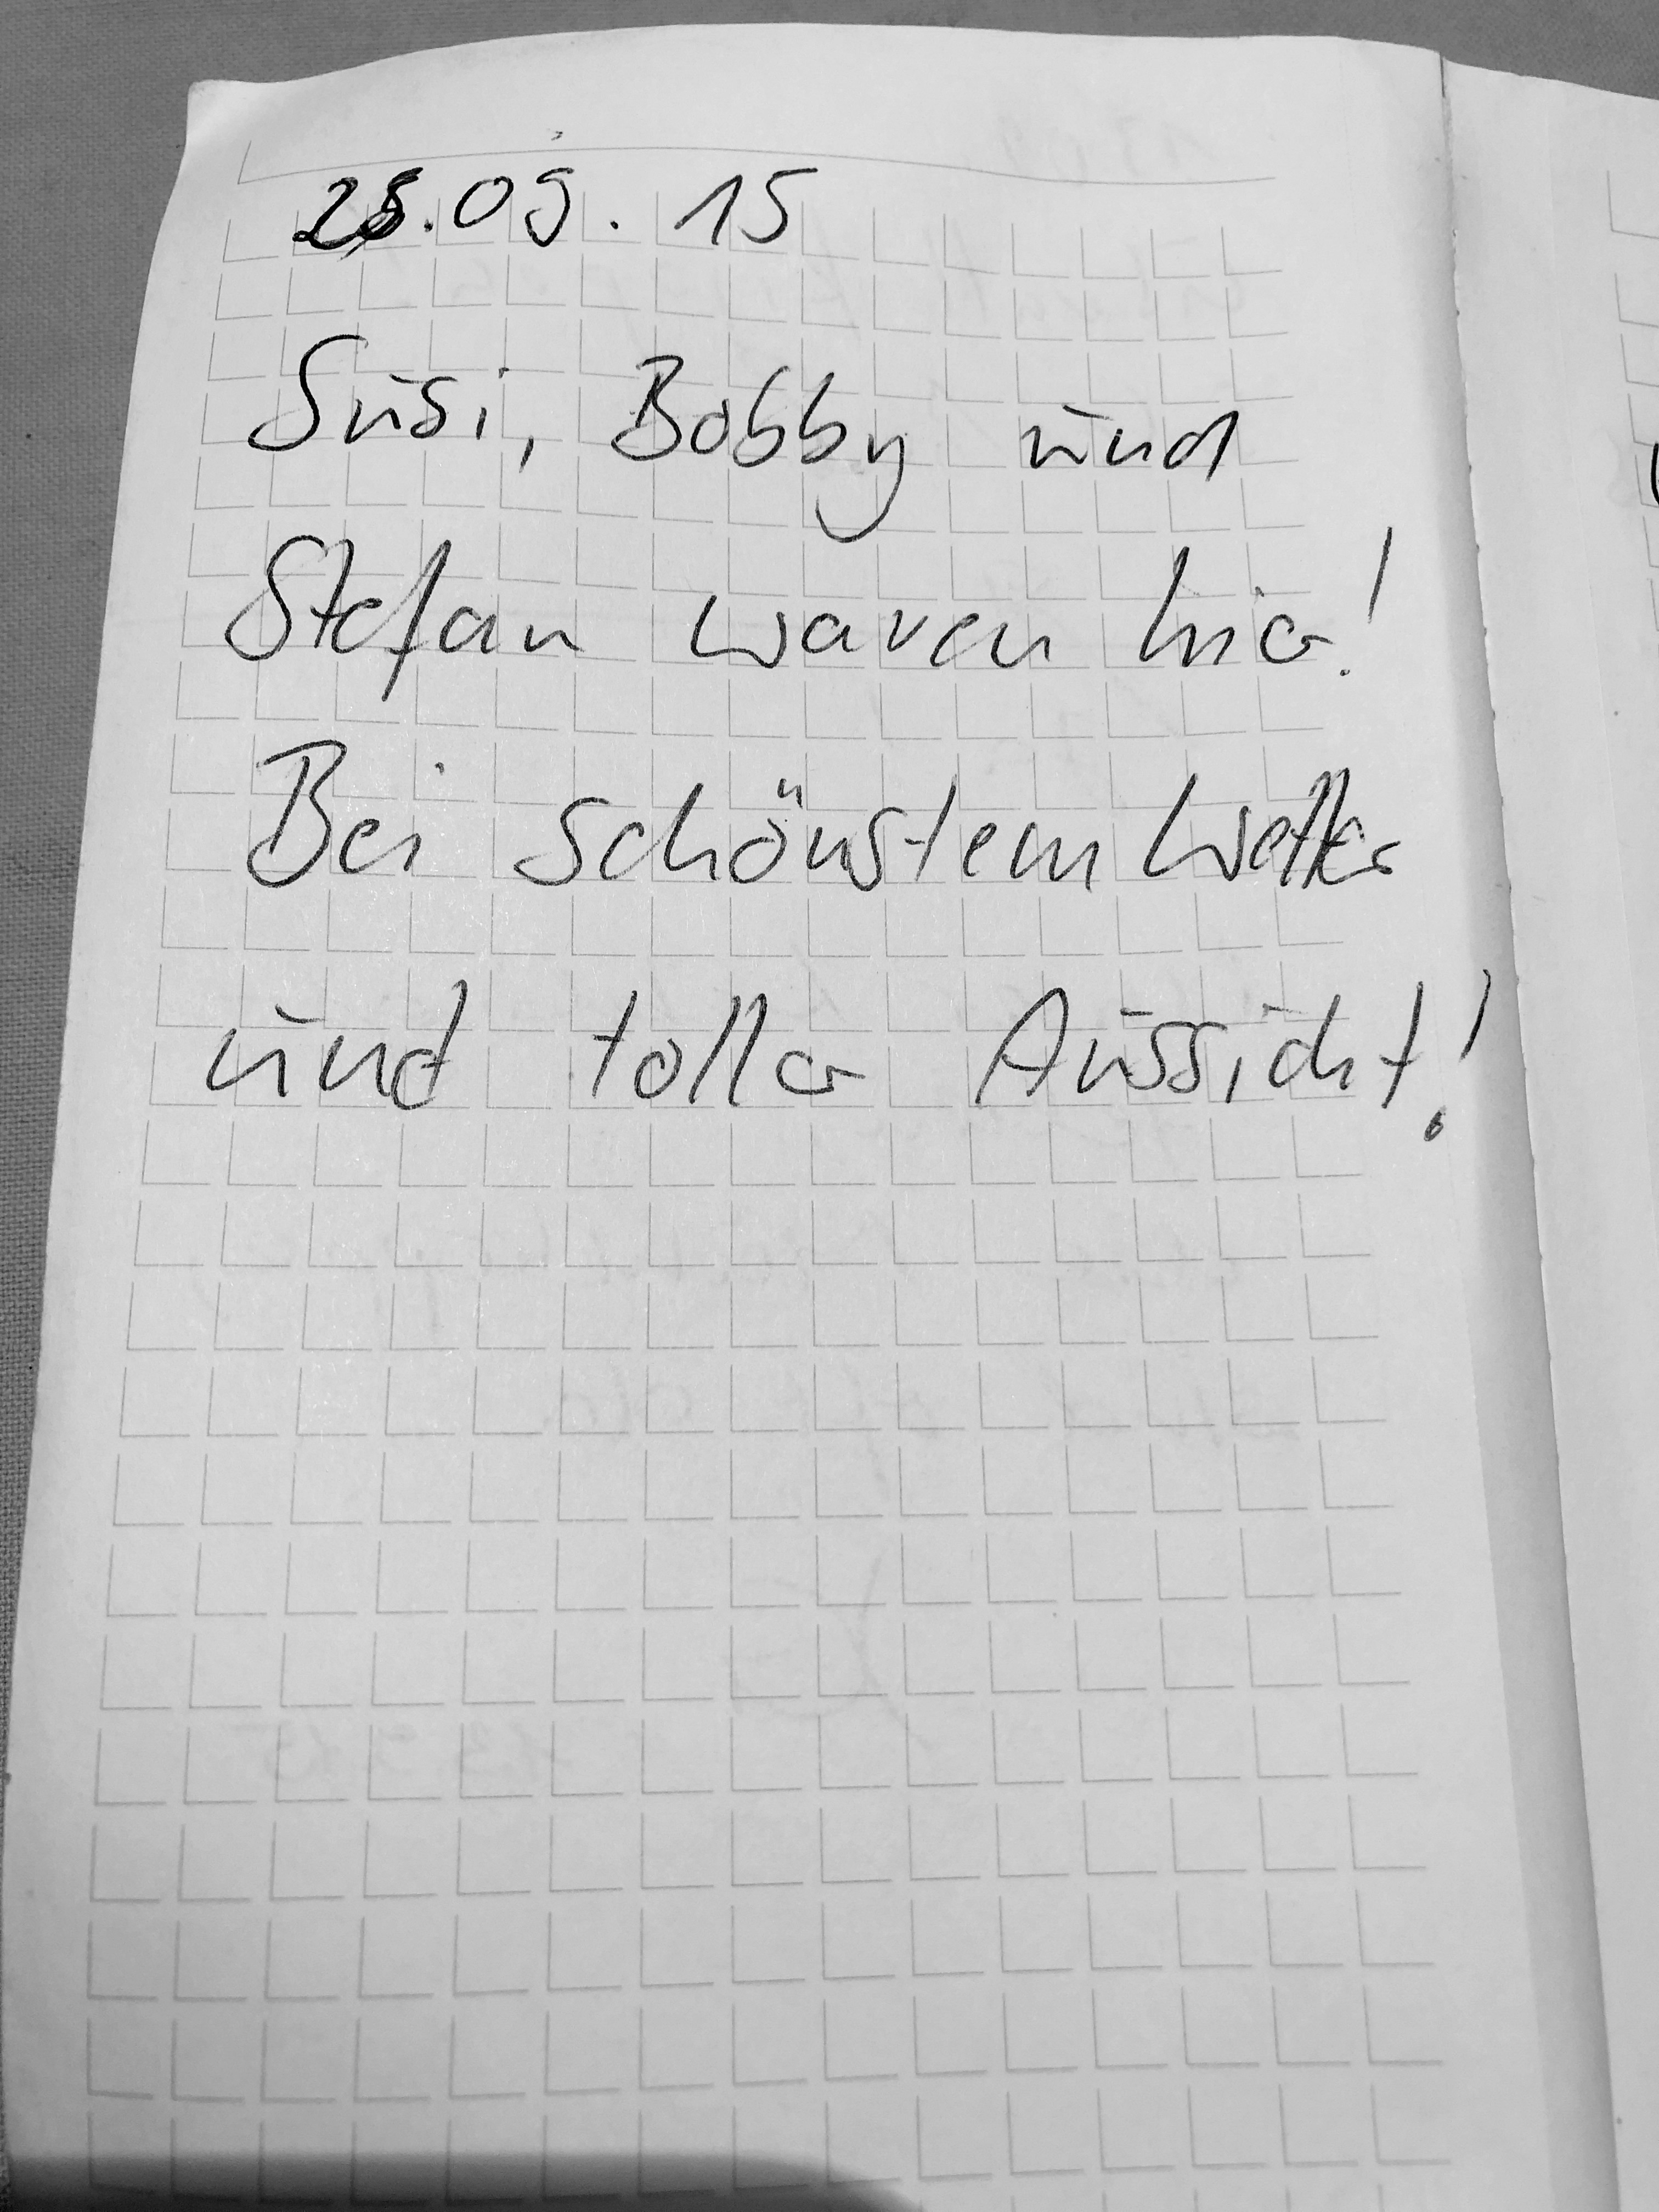 28.09.15
Susi, Bobby und
Stefan waren hier!
Bei schönstem Wetter
und toller Aussicht!